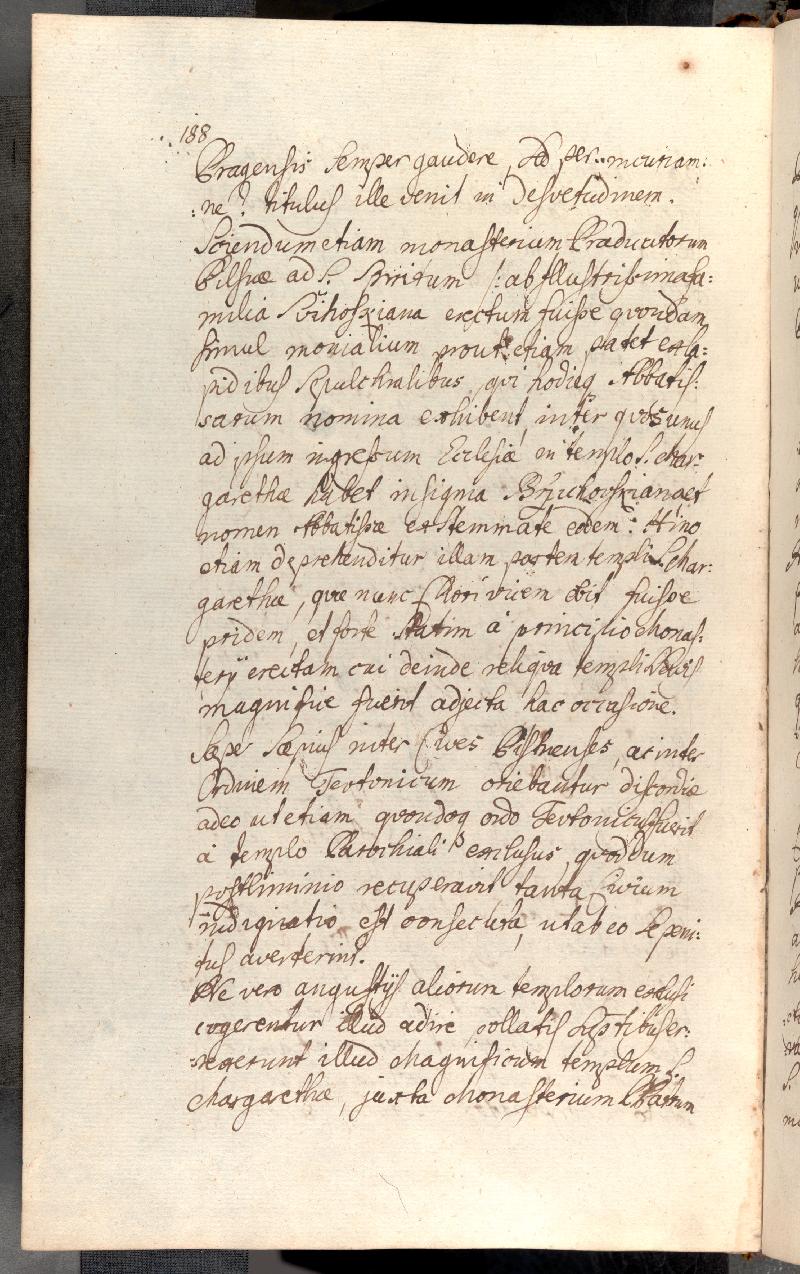 188
Pragensis semper gaudere, sed per incuriam:
:ne? titulus ille venit in desvetudinem.
Sciendum etiam monasterium Prædicatorum
Pilsnæ ad S. Spiritum /: ab Illustrissima fa:
milia Svihofskiana erectum fuisse qvondam
simul monialium prout etiam patet ex la:
pidibus sepulchralibus, qvi hodieq Abbatis:
sarum nomina exhibent, inter qvos unus
ad ipsum ingressum Ecclesiæ in templo S. Mar:
garethæ habet insignia et
nomen Abbatissæ ex stemmate eodem: Hinc
etiam deprehenditur illam partem templi S. Mar:
garethæ, qvæ nunc Chori vicem obit fuisse
pridem, et forte statim à principio Monas:
terÿ erectam cui deinde reliqva templi
magnifice fuerit adjecta hac occasione.
Sæpe Sæpius inter Cives Pilsnenses, ac inter
Ordinem Tevtonicum oriebantur discordiæ
adeo ut etiam qvondoq ordo Tevtonicus fuerit
à templo Parochiali exclusus, qvod dum
postliminio recuperavit tanta Civium
indignatio est consecuta, ut ab eo se peni:
tus averterint.
Ne vero angustÿs aliorum templorum exclusi
cogerentur illud adire, collatis sumptibus er:
:rexerunt illud Magnificum templum S.
Margarethæ, juxta Monasterium Patrum